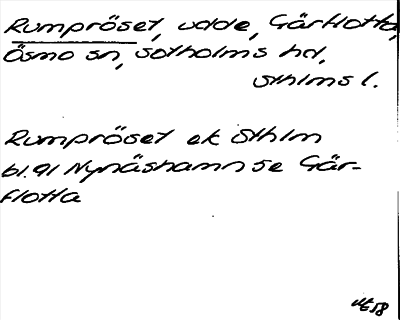 Rumpröset, udde, Gärflotta,
Ösmo sn, Sotholms hd,
Sthlms l.
Rumpröset ek Sthlm
bl. 91 Nynäshamn se Gär-
flotta